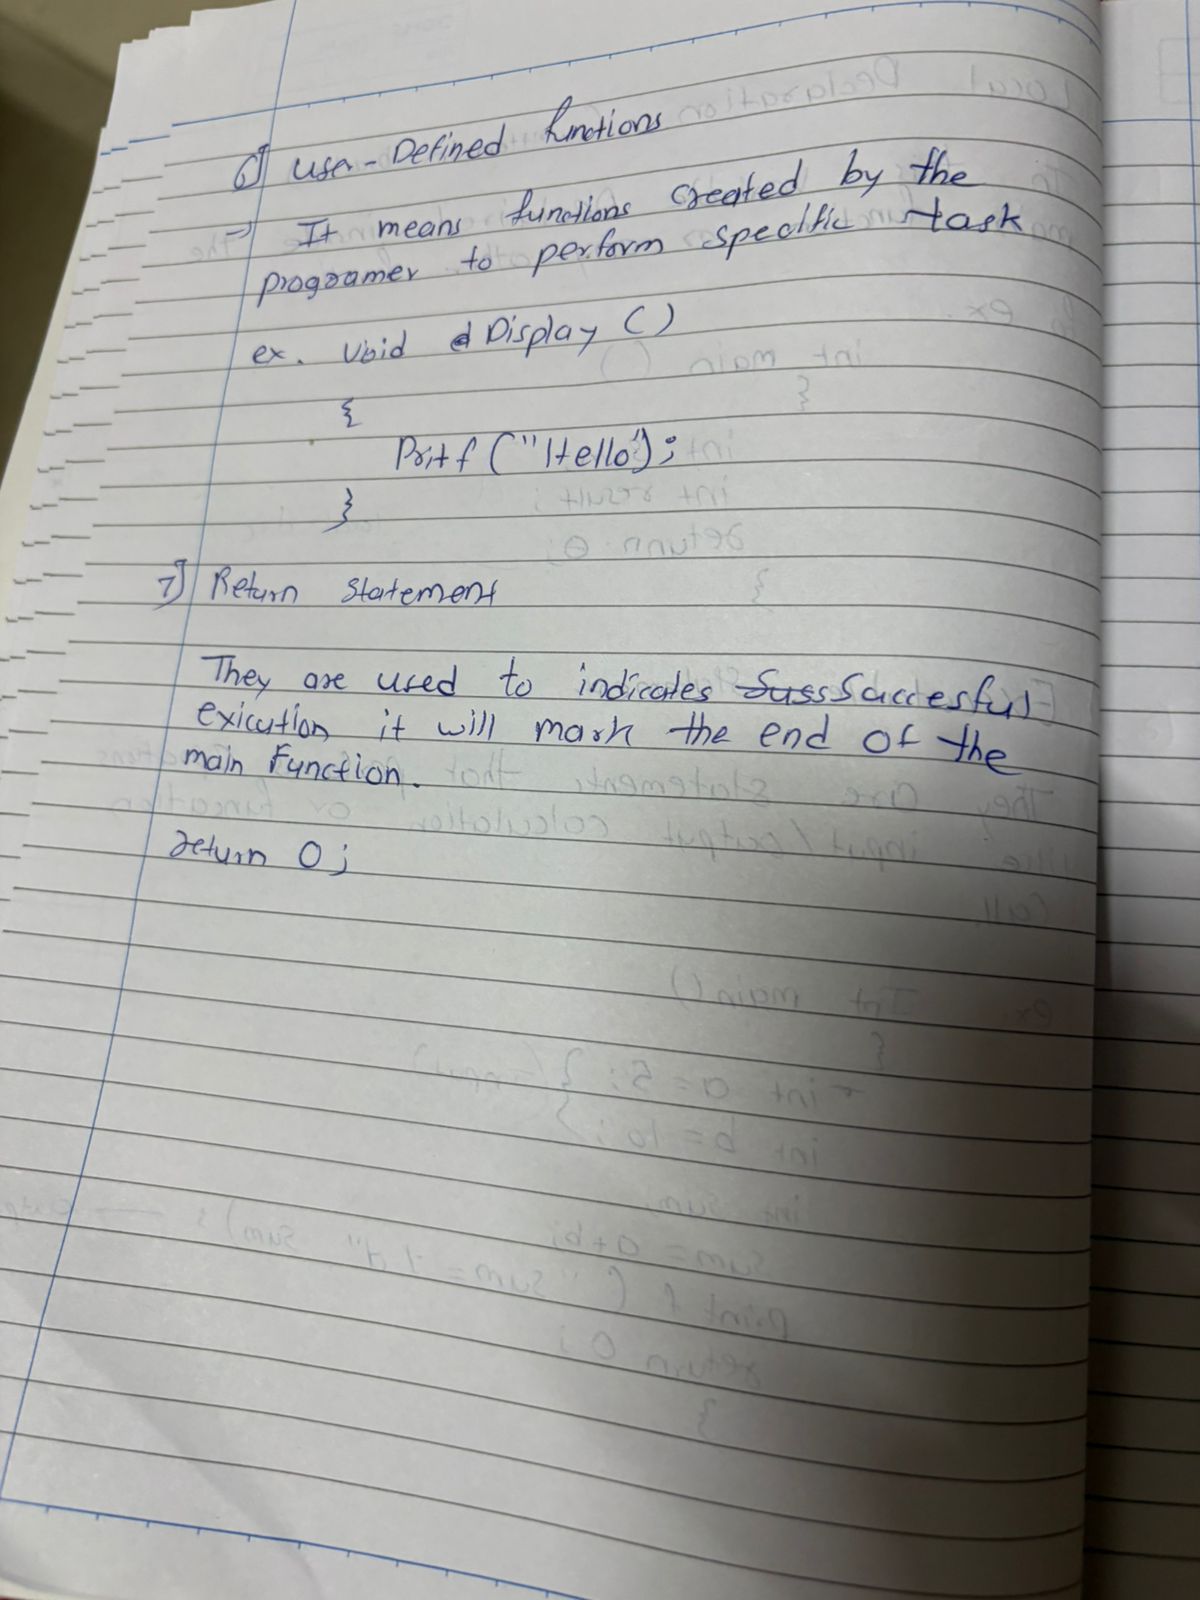 6] User-Defined functions
→ It means functions created by the
programer to perform specific task
ex. Void Display ()
{
Pritf ("Hello");
}
7] Return Statement
They are used to indicates Suss Saccesful
exicution it will mark the end of the
main Function.
return 0;